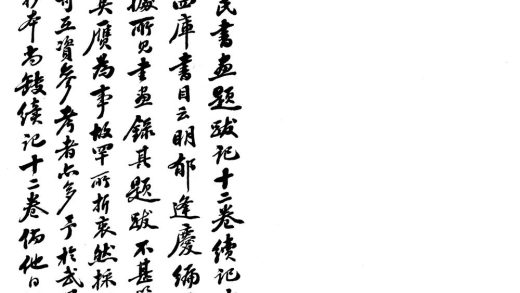 氏書畫題跋記十二卷續記
四庫書目云明郁逢慶編
據所見書畫錄其題跋不甚
真贋為事故罕所折衷然採
互資參考者亦多予於武
抄本尚缺續記十二卷倘他日